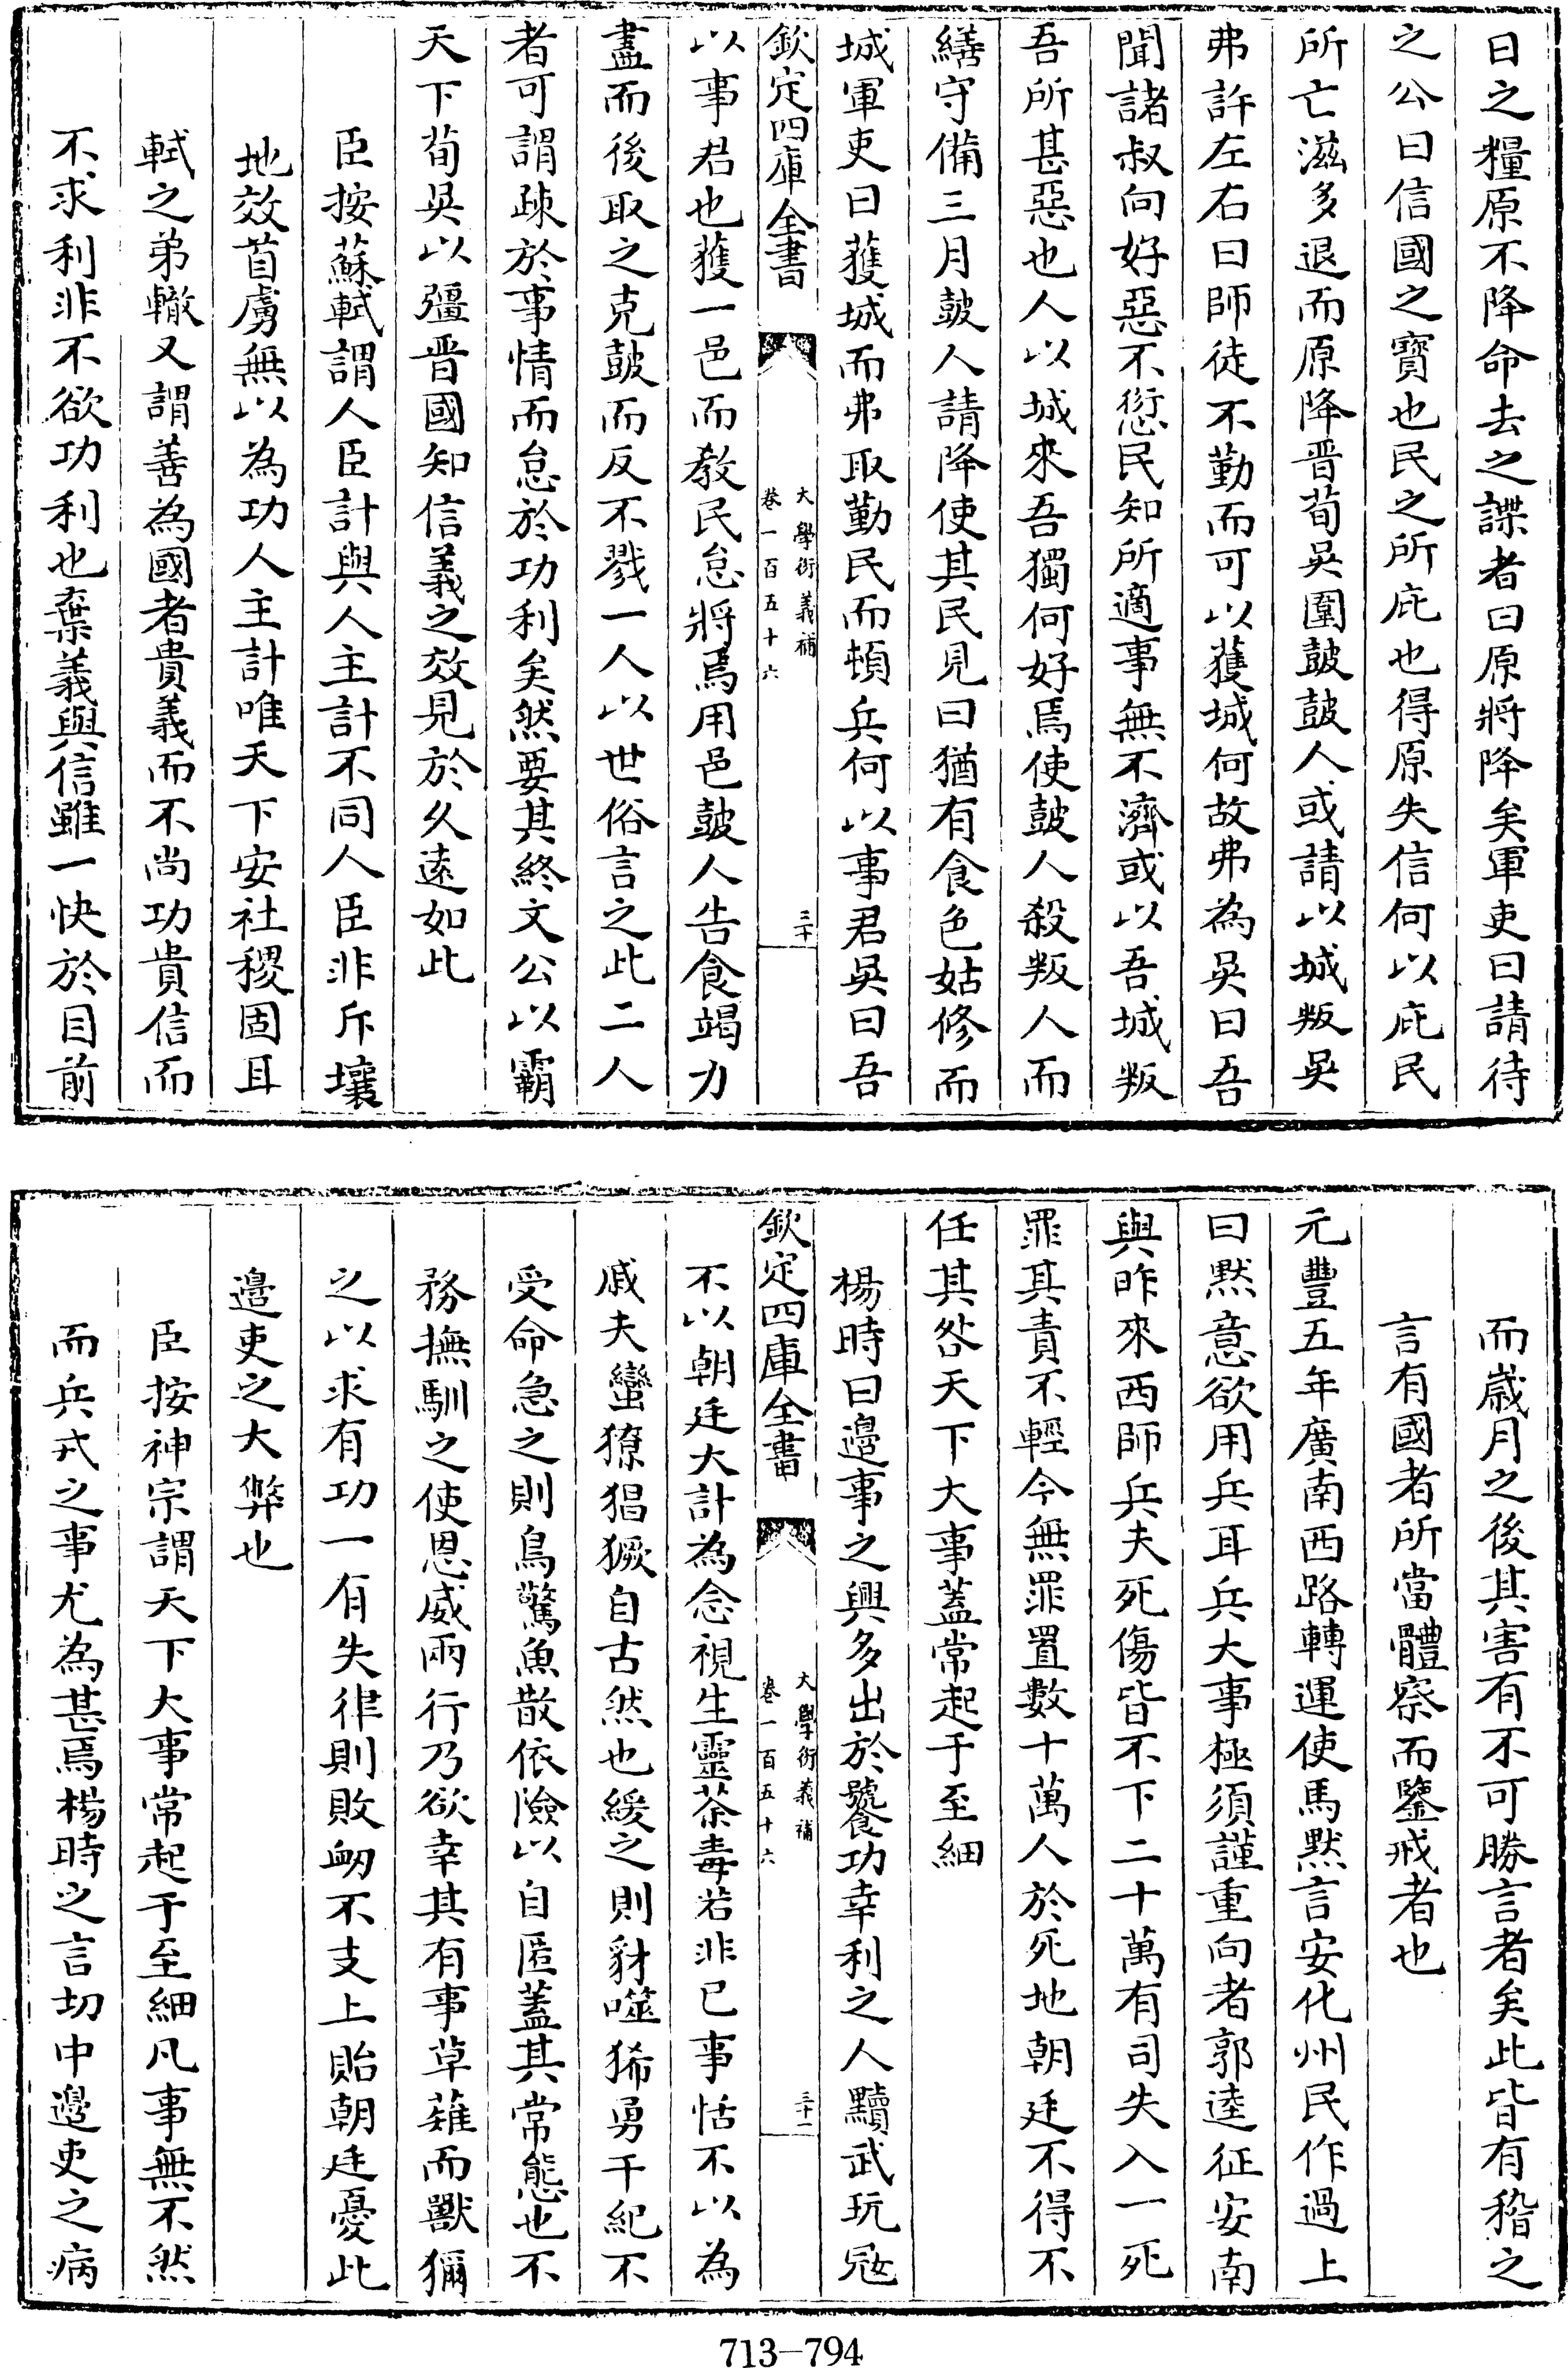 日之糧原不降命去之諜者曰原將降矣軍吏曰請待
之公曰信國之寶也民之所庇也得原失信何以庇民
所亡滋多退而原降晉荀吳圍鼓鼓人或請以城叛吳
弗許左右曰師徒不勤而可以獲城何故弗為吳曰吾
聞諸叔向好惡不愆民知所適事無不濟或以吾城叛
吾所甚惡也人以城來吾獨何好焉使鼓人殺叛人而
繕守備三月鼓人請降使其民見曰猶有食色姑修而
城軍吏曰獲城而弗取勤民而頓兵何以事君吳曰吾
欽定四庫全書
大學衍義補
卷一百五十六
三十
以事君也獲一邑而教民怠將焉用邑鼓人告食竭力
盡而後取之克鼓而反不戮一人以世俗言之此二人
者可謂疎於事情而怠於功利矣然要其終文公以霸
天下荀吳以彊晉國知信義之效見於久遠如此
臣按蘇軾謂人臣計與人主計不同人臣非斥壤
地效首虜無以為功人主計唯天下安社稷固耳
軾之弟轍又謂善為國者貴義而不尚功貴信而
不求利非不欲功利也棄義與信雖一快於目前
而歲月之後其害有不可勝言者矣此皆有稽之
言有國者所當體察而鑒戒者也
元豐五年廣南西路轉運使馬默言安化州民作過上
曰默意欲用兵耳兵大事極須謹重向者郭逵征安南
與昨來西師兵夫死傷皆不下二十萬有司失入一死
罪其責不輕今無罪置數十萬人於死地朝廷不得不
任其咎天下大事蓋常起于至細
楊時曰邊事之興多出於饕功幸利之人黷武玩寇
欽定四庫全書
大學衍義補
卷一百五十六
三十一
不以朝廷大計為念視生靈荼毒若非己事恬不以為
戚夫蠻獠猖獗自古然也緩之則豺噬狶勇干紀不
受命急之則鳥驚魚散依險以自匿蓋其常態也不
務撫馴之使恩威兩行乃欲幸其有事草薙而獸獮
之以求有功一有失律則敗衂不支上貽朝廷憂此
邊吏之大弊也
臣按神宗謂天下大事常起于至細凡事無不然
而兵戎之事尤為甚焉楊時之言切中邊吏之病
713-794